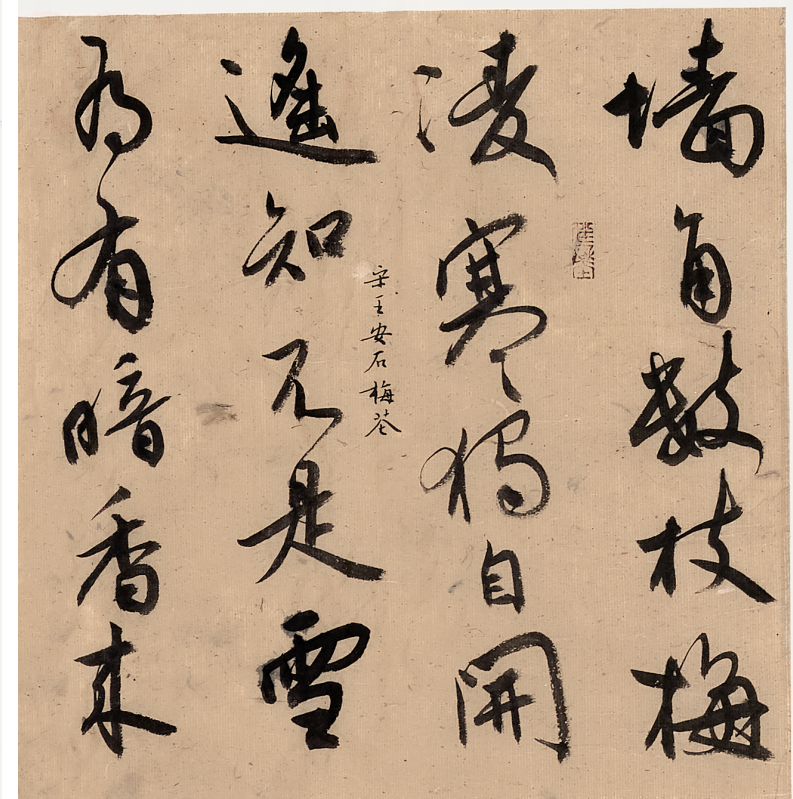 墙角數枝梅
凌寒獨自開
遙知不是雪
為有暗香来
宋王安石梅花